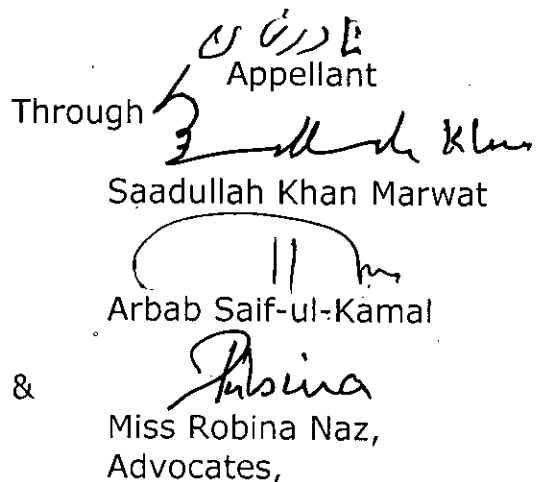 Appellant
Through
Khan
Saadullah Khan Marwat
Arbab Saif-ul-Kamal
Rubina
&
Miss Robina Naz,
Advocates,